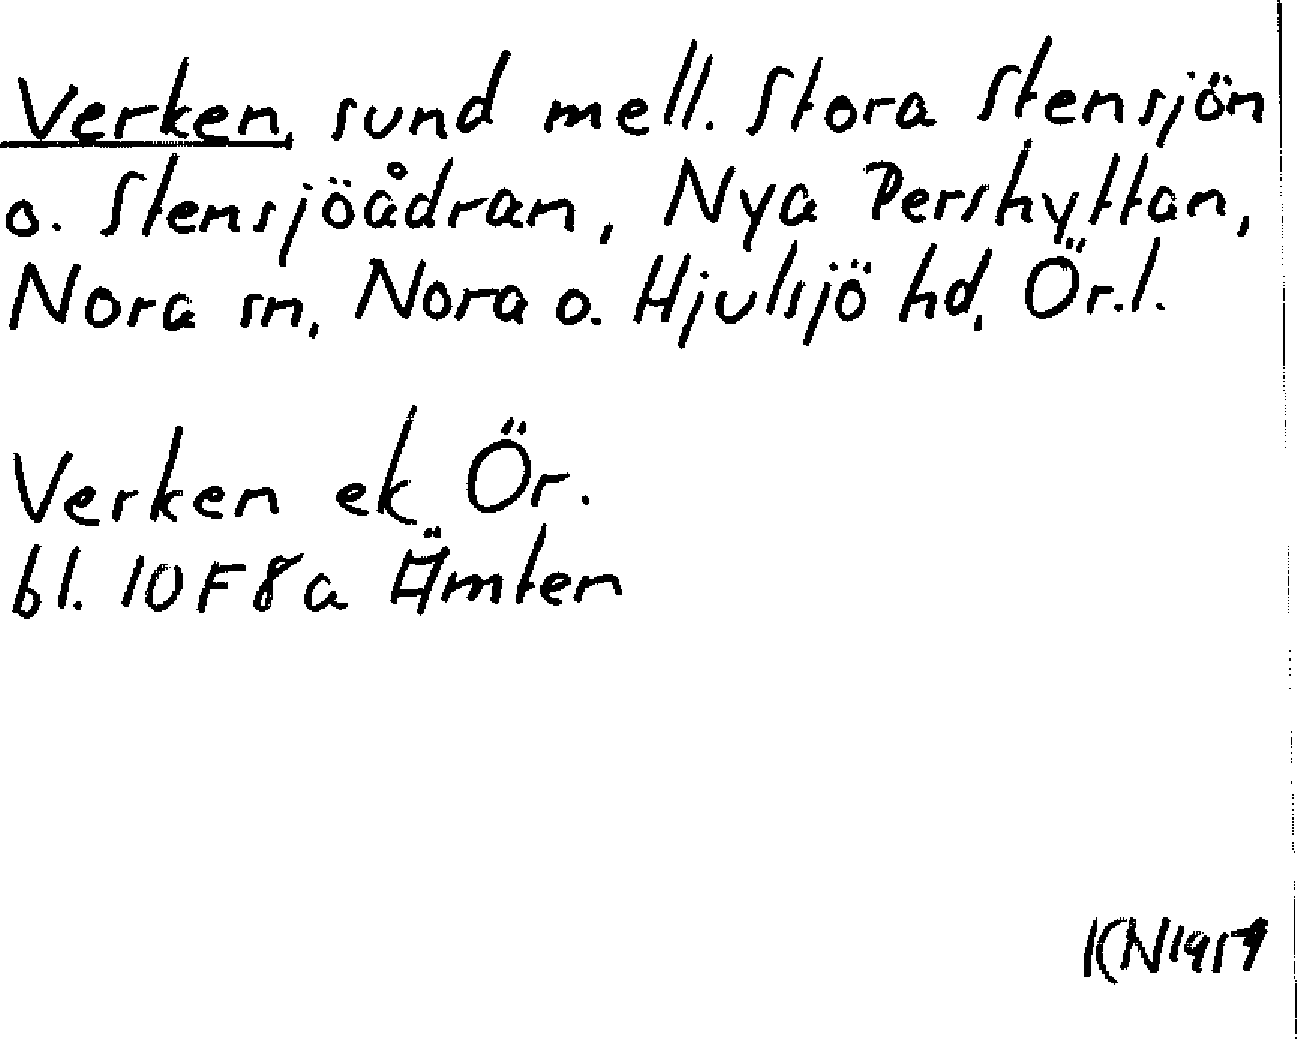 Verken, sund mell. Stora Stensjön
o. Stensjöådran, Nya Pershyttan,
Nora sn, Nora o. Hjulsjö hd, Ör.l.
Verken ek Ör.
bl. 10F8a Ämten
KN1959